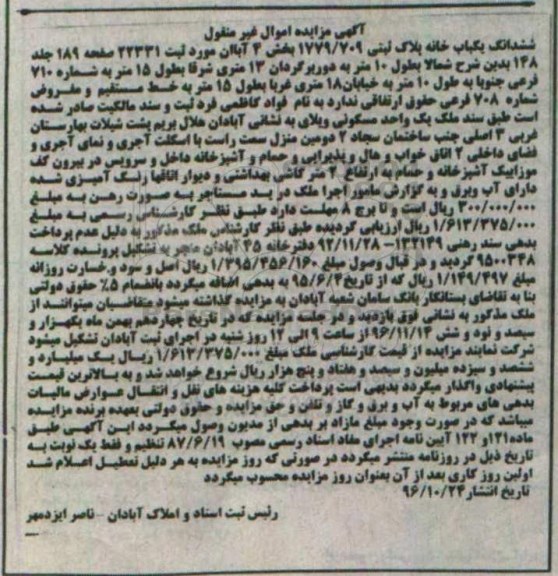 آگهی مزایده اموال غیر منقول
ششدانگ یکباب خانه پلاک ثبتی ۱۷۷۹/۷۰۹ بخش ۴ آبادان مورد ثبت ۲۲۳۳۱ صفحه ۱۸۹ جلد
۱۴۸ بدین شرح شمالا بطول ۱۰ متر به دوربرگردان ۱۳ متری شرقا بطول ۱۵ متر به شماره ۷۱۰
فرعی جنوبا به طول ۱۰ متر به خیابان ۱۸ متری غربا بطول ۱۵ متر به خط مستقیم و مفروض
شماره ۷۰۸ فرعی حقوق ارتفاقی ندارد به نام فواد کاظمی فرد ثبت و سند مالکیت صادر شده
است طبق سند ملک یک واحد مسکونی ویلای به نشانی آبادان هلال بریم پشت شیلات بهارستان
غربی ۳ اصلی جنب ساختمان سجاد ۲ دومین منزل سمت راست با اسکلت آجری و نمای آجری و
فضای داخلی ۲ اتاق خواب و هال و پذیرایی و حمام و آشپزخانه داخل و سرویس در بیرون کف
موزاییک آشپزخانه و حمام به ارتفاع ۲ متر کاشی بهداشتی و دیوار اتاقها رنگ آمیزی شده
دارای آب وبرق و به گزارش مامور اجرا ملک در ید مستاجر به صورت رهن به مبلغ
۳۰۰/۰۰۰/۰۰۰ ریال است و تا برج ۸ مهلت دارد طبق نظر کارشناس رسمی به مبلغ
۱/۶۱۳/۳۷۵/۰۰۰ ریال ارزیابی گردیده طبق نظر کارشناس ملک مذکور به دلیل عدم پرداخت
بدهی سند رهنی ۱۳۲۱۴۹- ۹۲/۱۱/۲۸ دفترخانه ۴۵ آبادان منجر به تشکیل پرونده کلاسه
۹۵۰۰۳۴۸ گردید و در قبال وصول مبلغ ۱/۳۹۵/۴۵۶/۱۶۰ ریال اصل و سود و خسارت روزانه
مبلغ ۱/۱۴۹/۴۹۷ ریال که از تاریخ ۹۵/۶/۴ به بدهی اضافه میگردد بانضمام ۵% حقوق دولتی
بنا به تقاضای بستانکار بانک سامان شعبه آبادان به مزایده گذاشته میشود متقاضیان میتوانند از
ملک مذکور به نشانی فوق بازدید و در جلسه مزایده که در تاریخ چهاردهم بهمن ماه یکهزار و
سیصد و نود و شش ۹۶/۱۱/۱۴ از ساعت ۹ الی ۱۲ روز شنبه در اجرای ثبت آبادان تشکیل میشود
شرکت نمایند مزایده از قیمت کارشناسی ملک مبلغ ۱/۶۱۳/۳۷۵/۰۰۰ ریال یک میلیارد و
ششصد و سیزده میلیون و سیصد و هفتاد و پنج هزار ریال شروع خواهد شد و به بالاترین قیمت
پیشنهادی واگذار میگردد بدیهی است پرداخت کلیه هزینه های نقل و انتقال عوارض مالیات
بدهی های مربوط به آب و برق و گاز و تلفن و حق مزایده و حقوق دولتی بعهده برنده مزایده
میباشد که در صورت وجود مبلغ مازاد بر بدهی از مدیون وصول میگردد این آگهی طبق
ماده ۱۲۱و ۱۲۲ آیین نامه اجرای مفاد اسناد رسمی مصوب ۸۷/۶/۱۹ تنظیم و فقط یک نوبت به
تاریخ ذیل در روزنامه منتشر میگردد در صورتی که روز مزایده به هر دلیل تعطیل اعلام شد
اولین روز کاری بعد از آن بعنوان روز مزایده محسوب میگردد
تاریخ انتشار ۹۶/۱۰/۲۴
رئیس ثبت اسناد و املاک آبادان - ناصر ایزدمهر